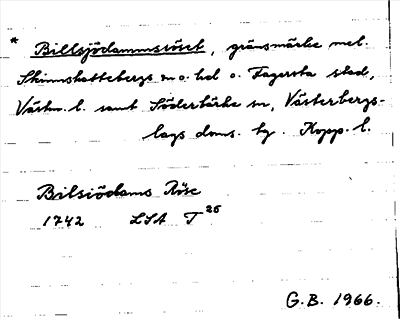 * Billsjödammsröset, gränsmärke mel.
Skinnskattebergs sn o. hd o. Fagersta stad,
Västm. l. samt Söderbärke sn, Västerbergs-
lags doms. tg. Kopp. l.
Bilsiödams Röse
1742 LSA T 25
G.B. 1966.